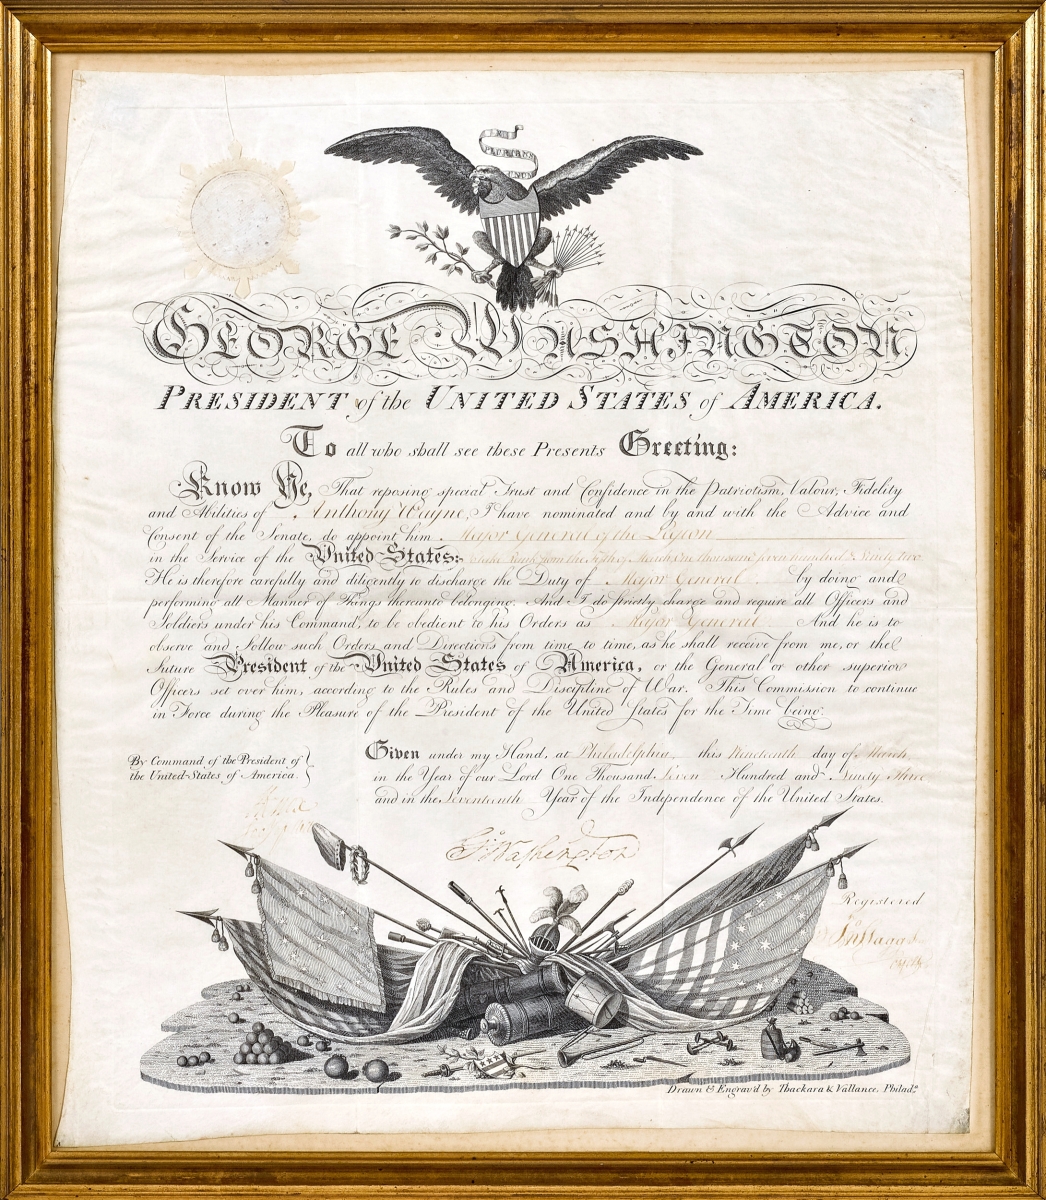 E PLURIBUS UNUM
GEORGE WASHINGTON
PRESIDENT of the UNITED STATES of AMERICA.
To all who shall see these Presents Greeting:
Know Ye, That reposing special Trust and Confidence in the Patriotism, Valour, Fidelity
and Abilities of Anthony Wayne, I have nominated and by and with the Advice and
Consent of the Senate, do appoint him Major General of the Legion
in the Service of the United States: to take Rank from the fifth of March One thousand seven hundred & Ninety two
He is therefore carefully and diligently to discharge the Duty of Major General by doing and
performing all Manner of Things thereunto belonging. And I do strictly charge and require all Officers and
Soldiers under his Command, to be obedient to his Orders as Major General. And he is to
observe and follow such Orders and Directions from time to time, as he shall receive from me, or the
future President of the United States of America, or the General or other superior
Officers set over him, according to the Rules and Discipline of War. This Commission to continue
in Force during the Pleasure of the President of the United States for the Time being.
Given under my Hand, at Philadelphia, this Nineteenth day of March
in the Year of our Lord One Thousand Seven Hundred and Ninety Three
and in the Seventeenth Year of the Independence of the United States.
By Command of the President of
the United States of America.
Go Washington
Registered
Drawn & Engrav'd by Thackara & Vallance. Philada.